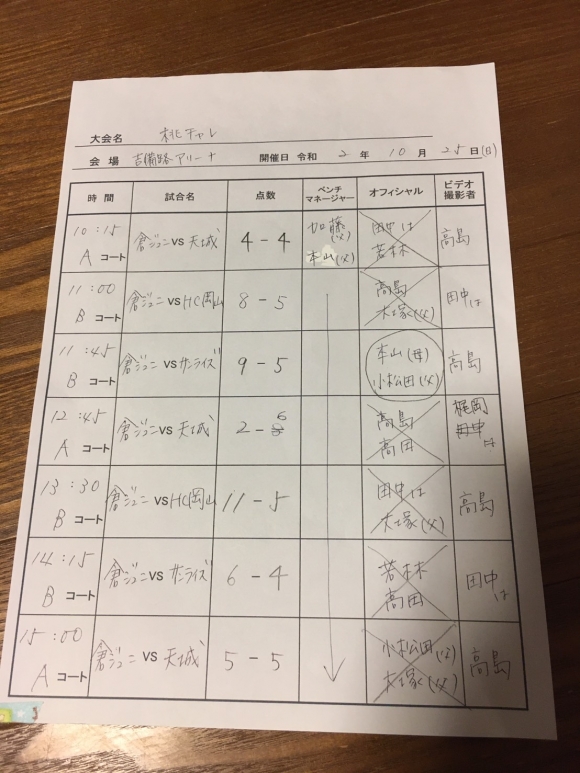 大会名 桃チャレ
会場 吉備路アリーナ 開催日 令和 2 年 10 月 25 日(日)
時間 試合名 点数 ベンチマネージャー オフィシャル ビデオ撮影者
10:15 Aコート 倉ジュニ VS 天城 4-4 加藤(父) 本山(父) 田中は 若林 高島
11:00 Bコート 倉ジュニ VS HC岡山 8-5 高島 大塚(父) 田中は
11:45 Bコート 倉ジュニ VS サンライズ 9-5 本山(母) 小松田(父) 高島
12:45 Aコート 倉ジュニ VS 天城 2-6 高島 高田 梶岡 田中は
13:30 Bコート 倉ジュニ VS HC岡山 11-5 田中は 大塚(父) 高島
14:15 Bコート 倉ジュニ VS サンライズ 6-4 若林 高田 田中は
15:00 Aコート 倉ジュニ VS 天城 5-5 小松田(父) 大塚(父) 高島